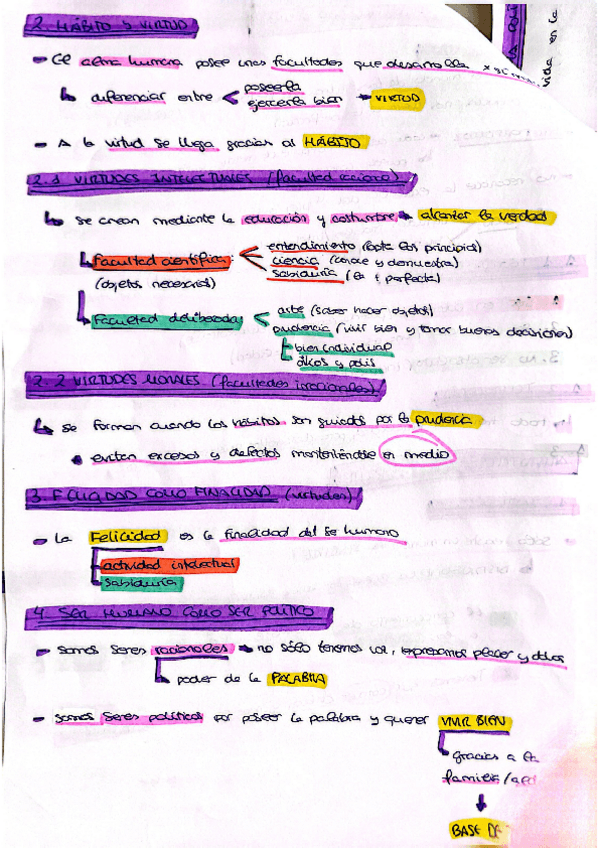 2. HÁBITO Y VIRTUD
El alma humana posee unas facultades que desarrolla
diferenciar entre < poseerla → VIRTUD
ejercerla bien
A la virtud se llega gracias al HÁBITO
2.1 VIRTUDES INTELECTUALES (facultad racional)
se crean mediante la educación y costumbre → alcanzar la verdad
Facultad científica: < entendimiento (capta los principios)
ciencia (conoce y demuestra)
(objetos necesarios) sabiduría (la + perfecta)
Facultad deliberada < arte (saber hacer objetos)
prudencia (vivir bien y tomar buenas decisiones)
bien individual
oikos y polis
2.2 VIRTUDES MORALES (facultades irracionales)
se forman cuando los hábitos son guiados por la prudencia
evitan excesos y defectos manteniéndose en medio
3. FELICIDAD COMO FINALIDAD (virtudes)
La Felicidad es la finalidad del ser humano
actividad intelectual
sabiduría
4. SER HUMANO COMO SER POLÍTICO
somos seres racionales → no sólo tenemos voz, expresamos placer y dolor
poder de la PALABRA
somos seres políticos por poseer la palabra y querer VIVIR BIEN
gracias a la
familia /
BASE DE
vida en la